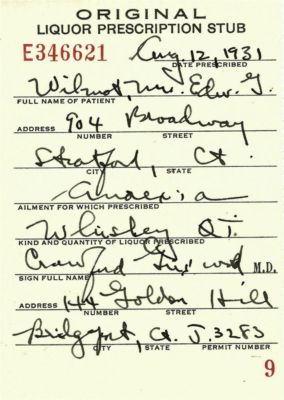 ORIGINAL
LIQUOR PRESCRIPTION STUB
E346621 Aug. 12, 1931
DATE PRESCRIBED
Wilmot, Mrs. Edw. G.
FULL NAME OF PATIENT
904 Broadway
ADDRESS NUMBER STREET
Stratford, Ct.
CITY STATE
Anorexia
AILMENT FOR WHICH PRESCRIBED
Whiskey QT.
KIND AND QUANTITY OF LIQUOR PRESCRIBED
Crawford M.D.
SIGN FULL NAME
ADDRESS 144 Golden Hill
NUMBER STREET
Bridgeport, Ct. J.3283
CITY STATE PERMIT NUMBER
9